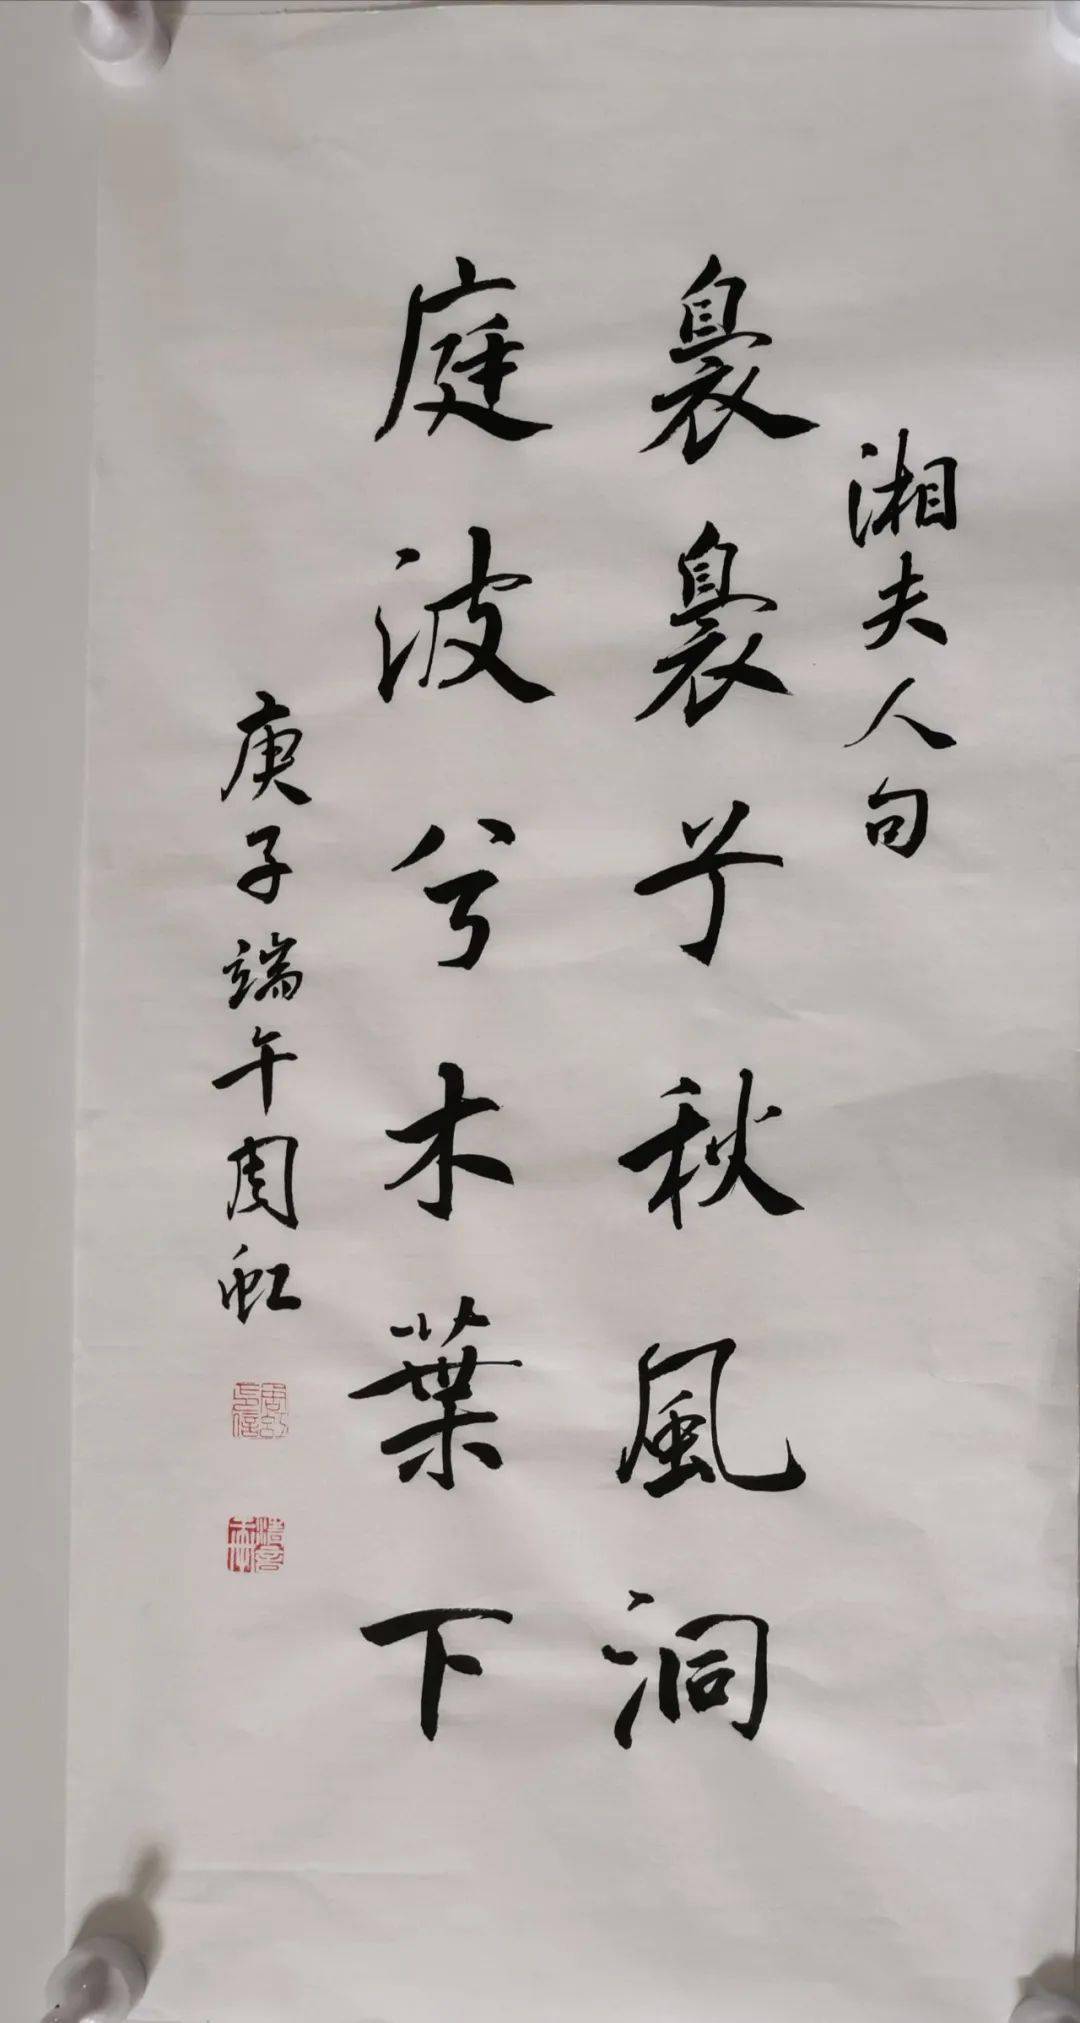 湘夫人句
袅袅兮秋風洞
庭波兮木葉下
庚子端午周虹